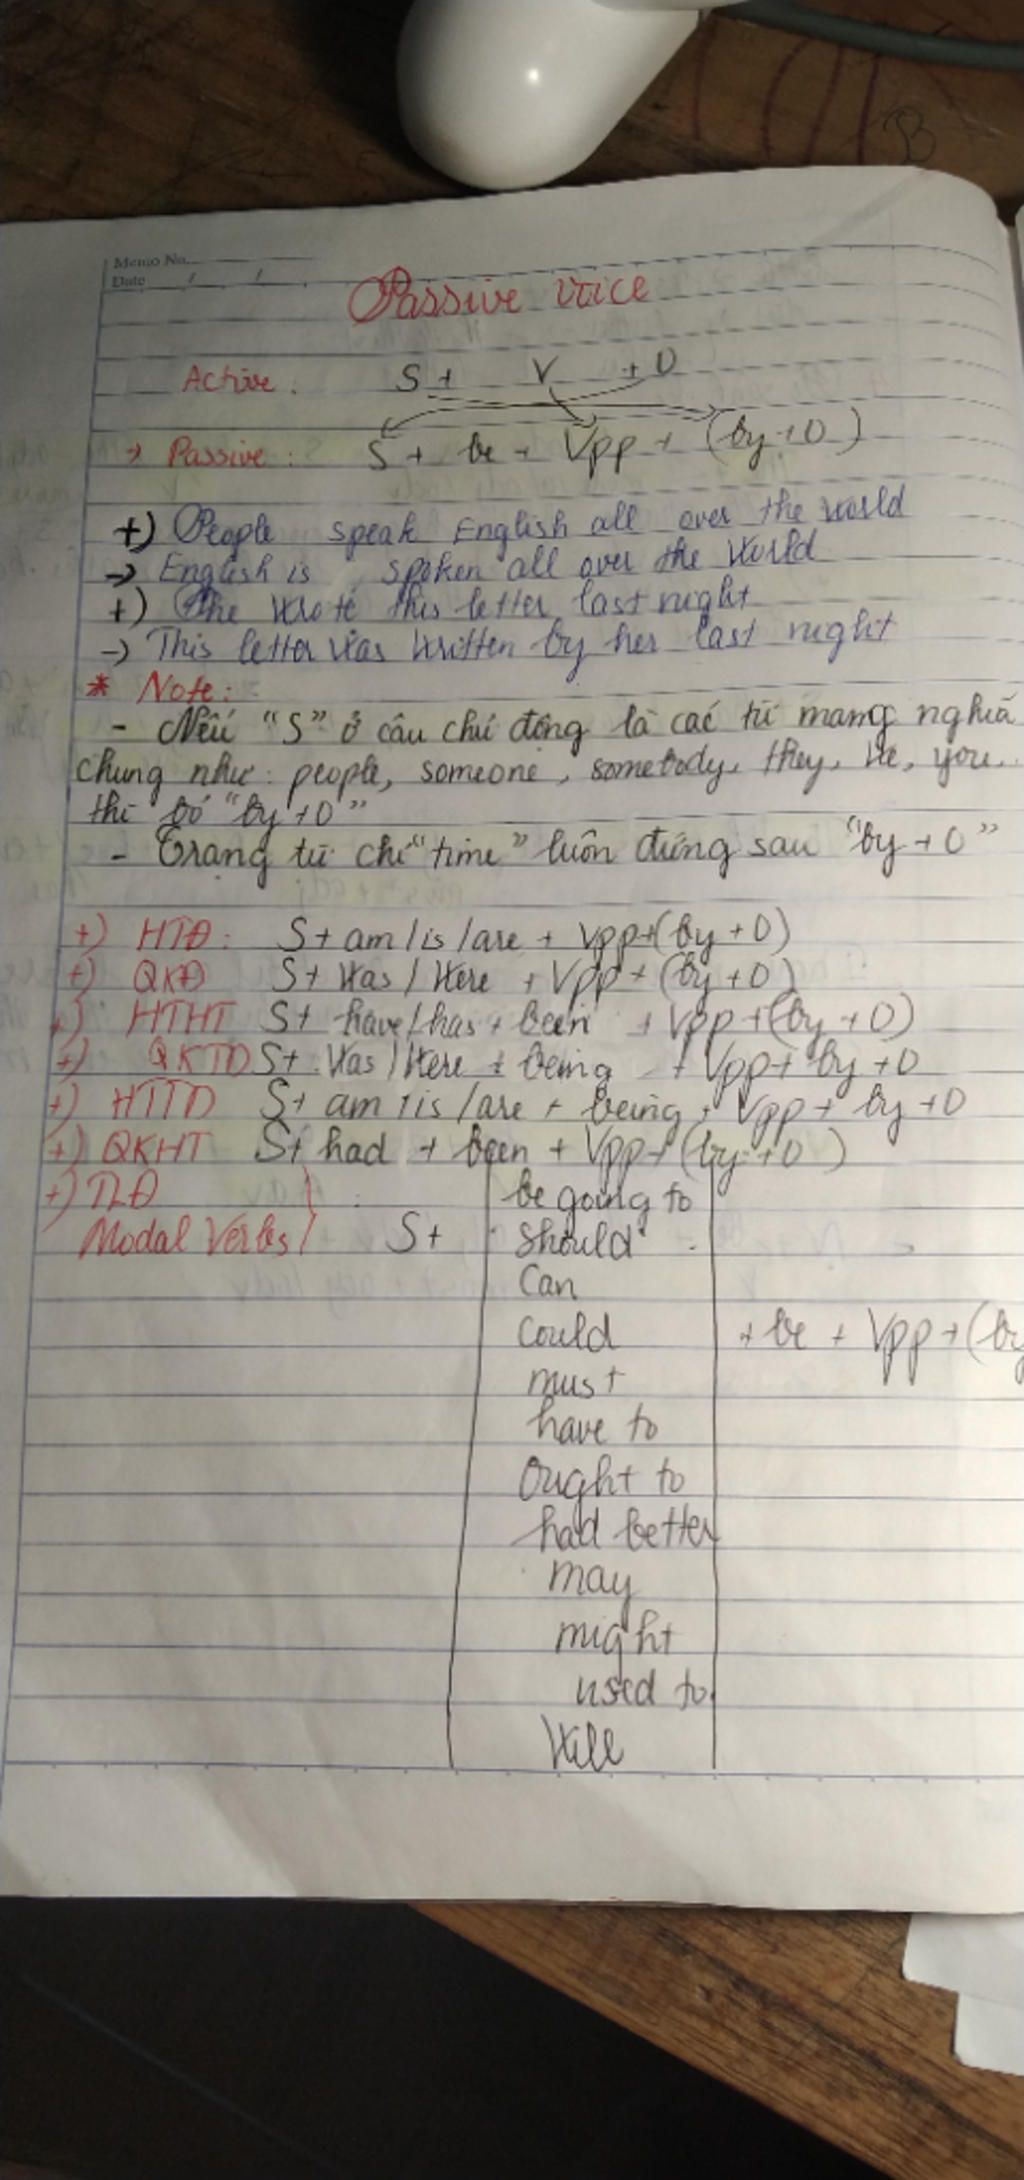 Memo No.
Date / /
Passive voice
Active: S + V + O
→ Passive: S + be + Vpp + (by + O)
+) People speak English all over the world
→ English is spoken all over the world
+) She wrote this letter last night
→ This letter was written by her last night
* Note:
- Nếu "S" ở câu chủ động là các từ mang nghĩa
chung như: people, someone, somebody, they, he, you
thì bỏ "by + O"
- Trạng từ chỉ "time" luôn đứng sau "by + O"
+) HTĐ: S + am / is / are + Vpp + (by + O)
+) QKĐ S + was / were + Vpp + (by + O)
+) HTHT S + have / has + been + Vpp + (by + O)
+) QKTD S + was / were + being + Vpp + by + O
+) HTTD S + am / is / are + being + Vpp + by + O
+) QKHT S + had + been + Vpp + (by + O)
+) TLĐ be going to
Modal Verbs S + should
can
could + be + Vpp + (by
must
have to
ought to
had better
may
might
used to
will